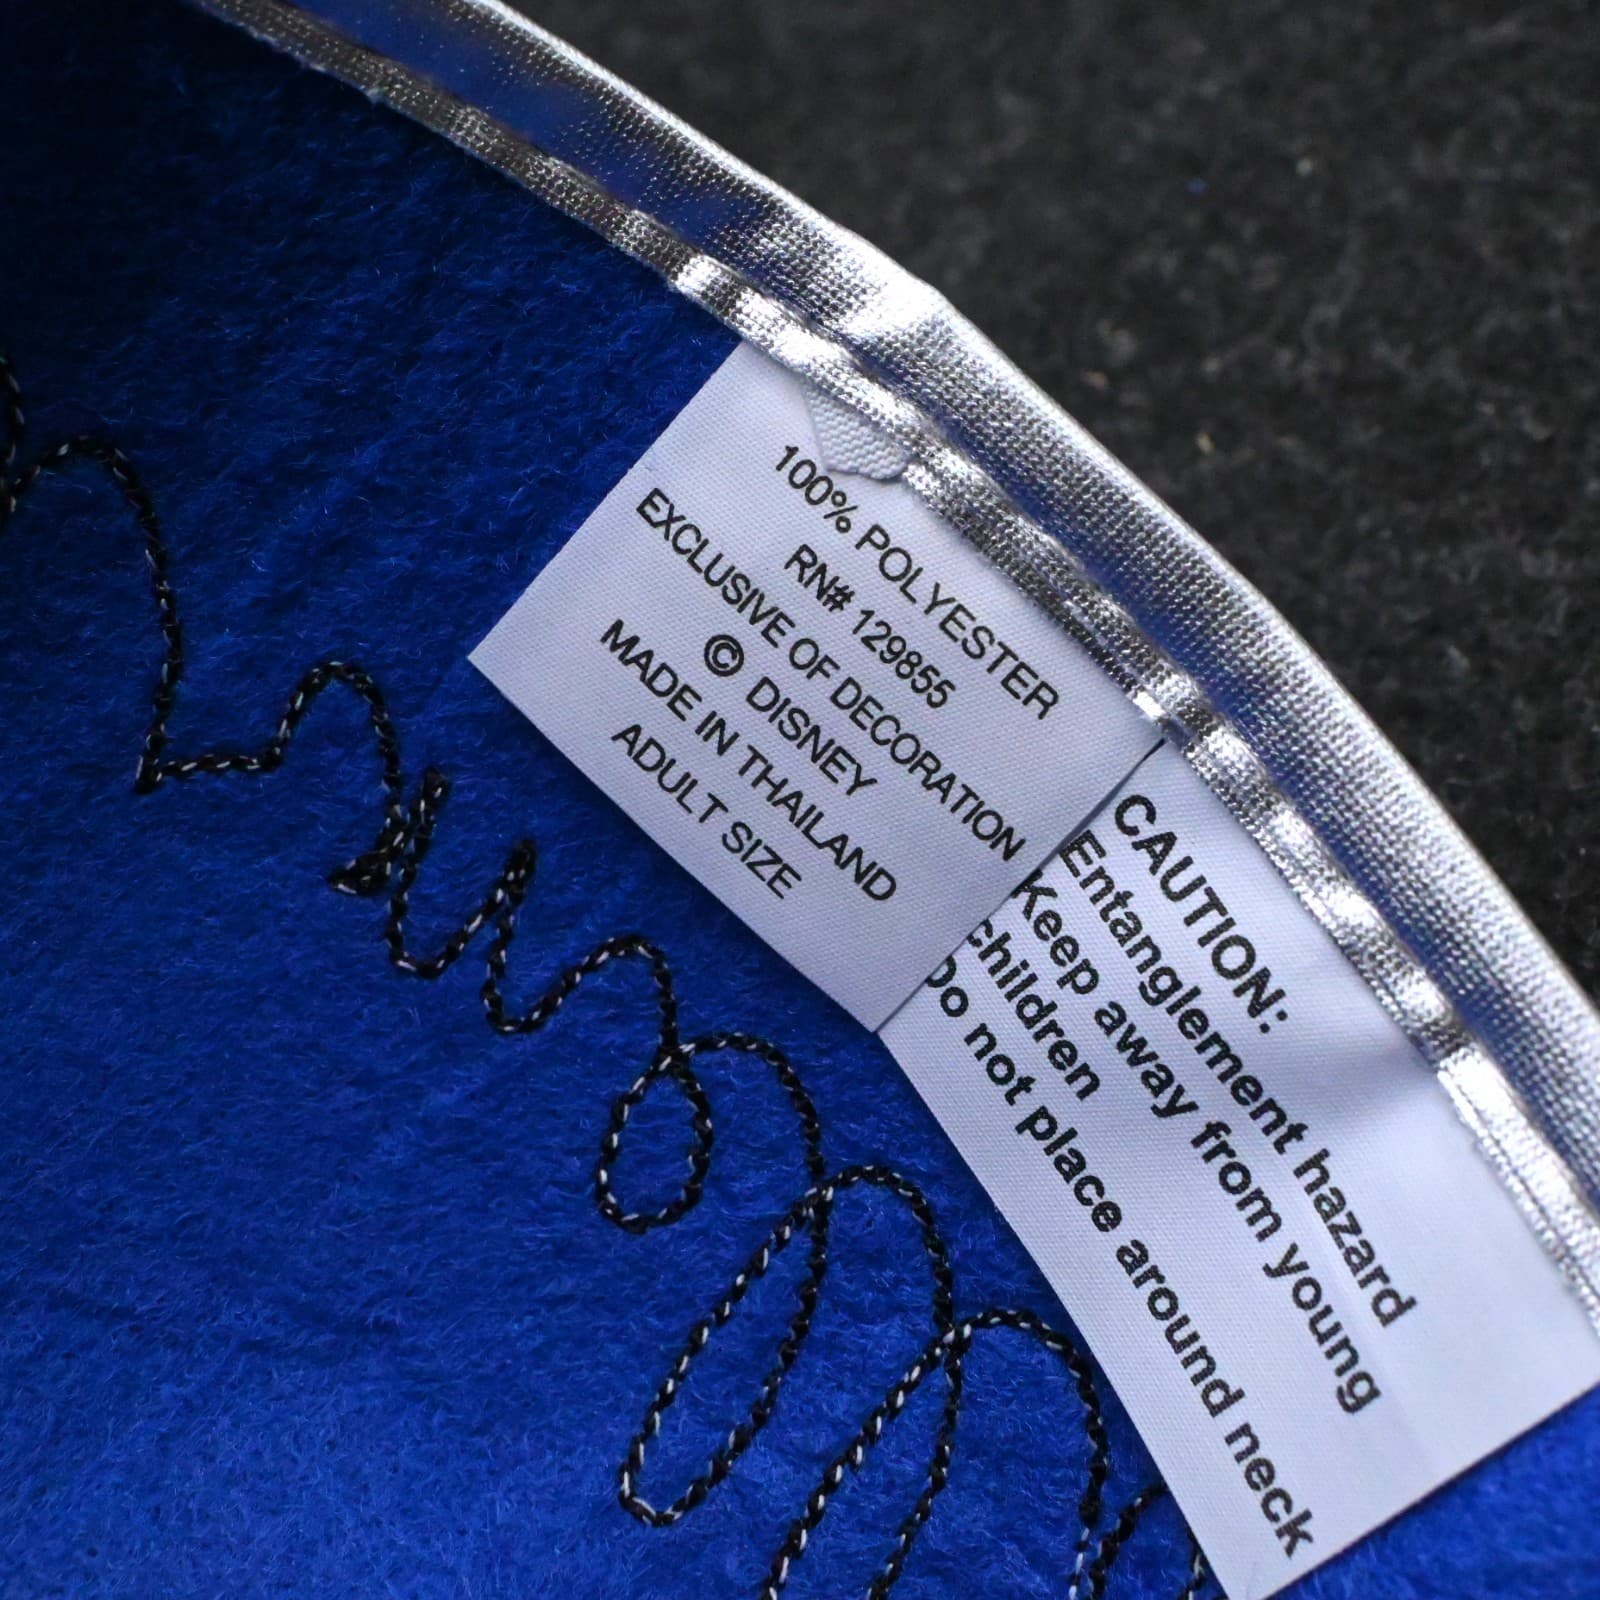 100% POLYESTER
RN# 129855
EXCLUSIVE OF DECORATION
© DISNEY
MADE IN THAILAND
ADULT SIZE
CAUTION:
Entanglement hazard
Keep away from young
children
Do not place around neck